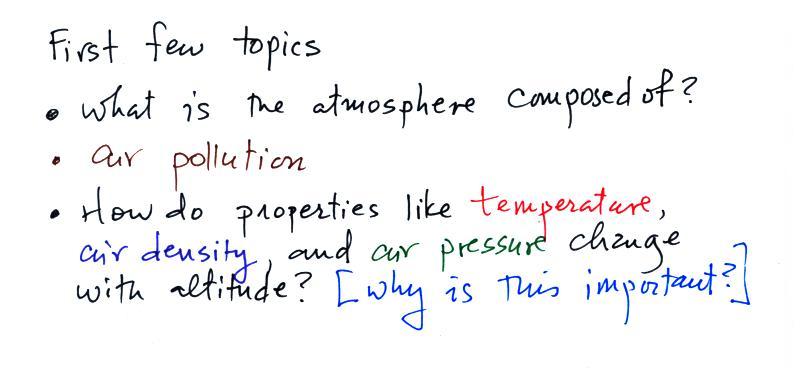 First few topics
• what is the atmosphere composed of?
• air pollution
• How do properties like temperature,
air density, and air pressure change
with altitude? [why is this important?]